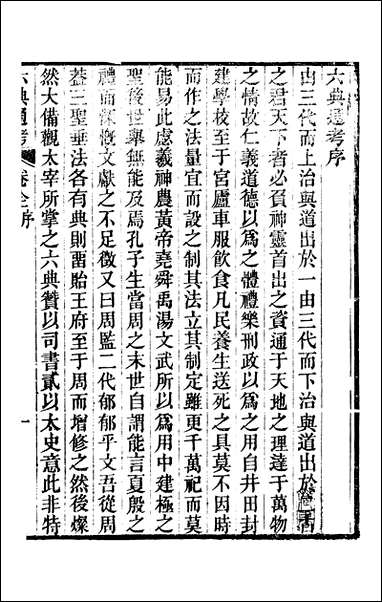 六典通考序
由三代而上治與道出於一由三代而下治與道出於
之君天下者必負神靈首出之資通于天地之理達于萬物
之情故仁義道德以爲之體禮樂刑政以爲之用自井田封
建學校至于宮廬車服飲食凡民養生送死之具莫不因時
而作之法量宜而設之制其法立其制定雖更千萬祀而莫
能易此虙羲神農黃帝堯舜禹湯文武所以爲用中建極之
聖後世舉無能及焉孔子生當周之末世自謂能言夏殷之
禮而深慨文獻之不足徵又曰周監二代郁郁乎文吾從周
蓋三聖垂法各有典則畱貽王府至于周而增修之然後燦
然大備觀太宰所掌之六典贊以司書貳以太史意此非特
六典通考 卷全序 一